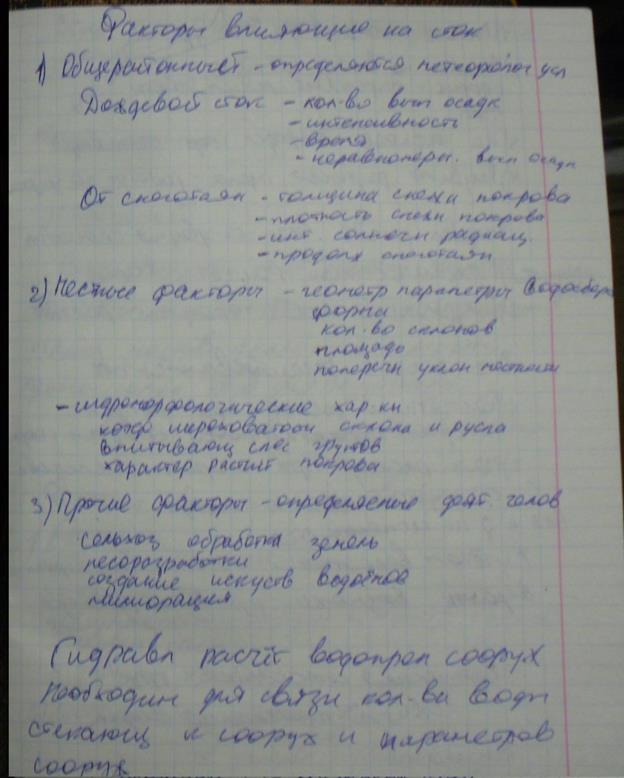 Факторы влияющие на сток
1) Общерайонные - определяются метеоролог усл
Дождевой сток - кол-во вып осадк
- интенсивность
- время
- неравномерн. вып осадк
От снеготаян - толщина снежн покрова
- плотность снежн покрова
- инт солнечн радиац.
- продолж снеготаян
2) Местные факторы - геометр параметры водосбора
форма
кол-во склонов
площадь
поперечн уклон местности
- гидроморфологические хар ки
коэф шероховатости склона и русла
впитывающ спос грунтов
характер растит покрова
3) Прочие факторы - определяемые деят. челов
сельхоз обработка земель
лесоразработки
создание искуств водоёмов
милиорация
Гидравл расчёт водопроп сооруж
необходим для связи кол-ва воды
стекающ к сооруж и параметров
сооруж